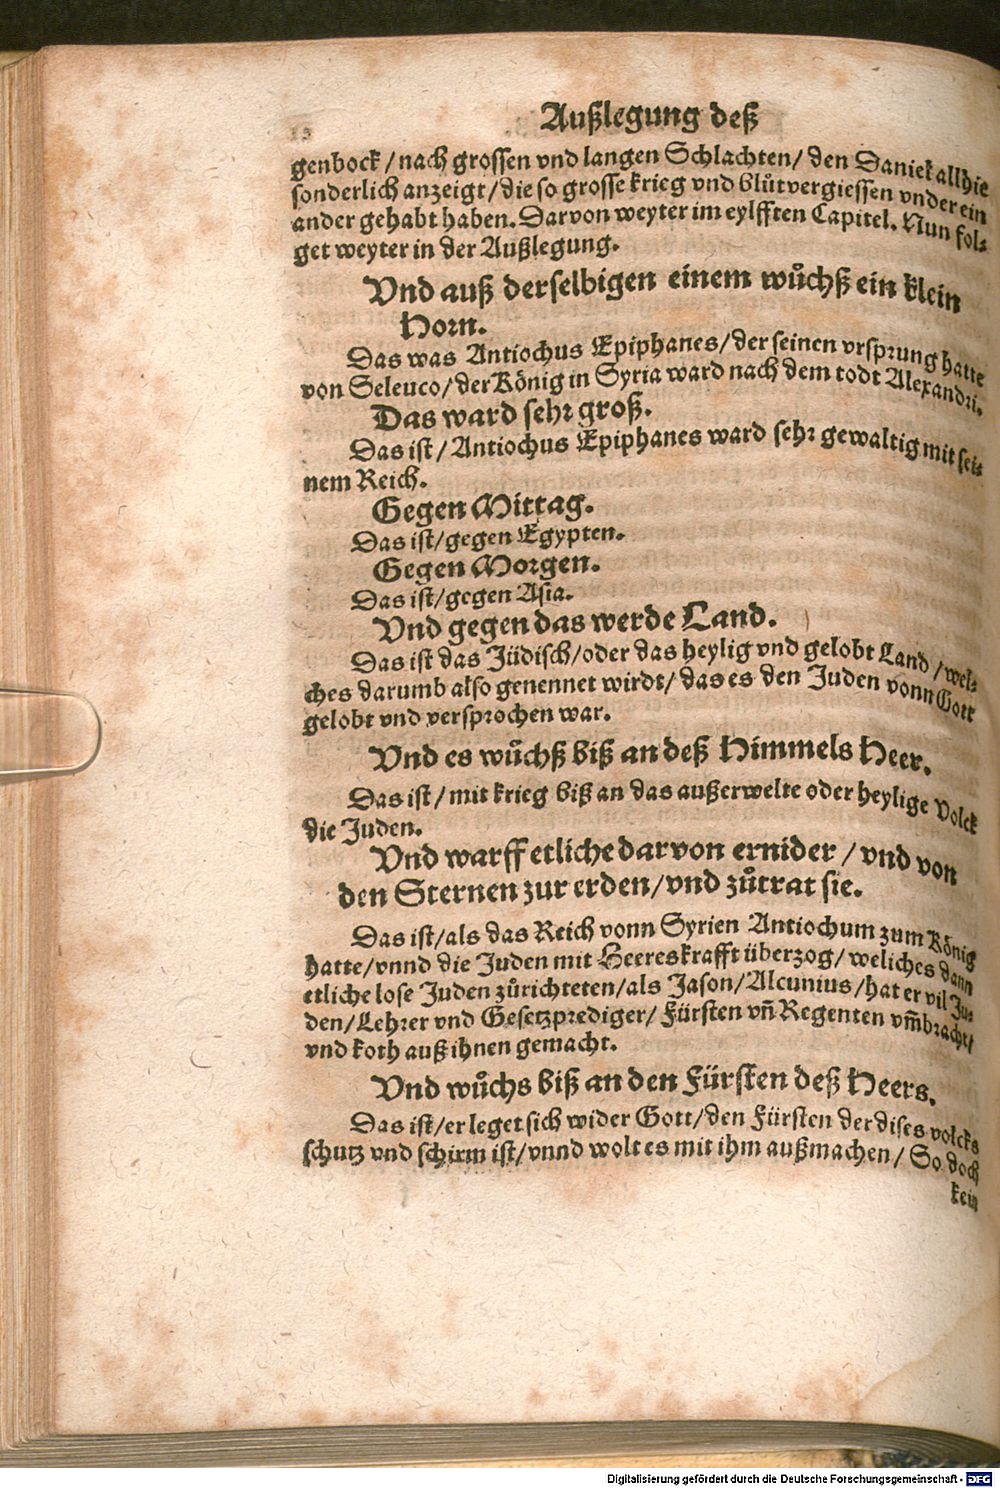 Außlegung deß
genbock / nach grossen vnd langen Schlachten / den Daniel allhie
sonderlich anzeigt / die so grosse krieg vnd blůtvergiessen vnder ein
ander gehabt haben. Darvon weyter im eylfften Capitel. Nun fol-
get weyter in der Außlegung.
Vnd auß derselbigen einem wůchß ein klein
Horn.
Das was Antiochus Epiphanes / der seinen vrsprung hatte
von Seleuco / der König in Syria ward nach dem todt Alexandri.
Das ward sehr groß.
Das ist / Antiochus Epiphanes ward sehr gewaltig mit sei-
nem Reich.
Gegen Mittag.
Das ist / gegen Egypten.
Gegen Morgen.
Das ist / gegen Asia.
Vnd gegen das werde Land.
Das ist das Jüdisch / oder das heylig vnd gelobt Land / wel-
ches darumb also genennet wirdt / das es den Juden vonn Gott
gelobt vnd versprochen war.
Vnd es wůchß biß an deß Himmels Heer.
Das ist / mit krieg biß an das außerwelte oder heylige Volck
die Juden.
Vnd warff etliche darvon ernider / vnd von
den Sternen zur erden / vnd zůtrat sie.
Das ist / als das Reich vonn Syrien Antiochum zum König
hatte / vnnd die Juden mit Heereskrafft überzog / weliches dann
etliche lose Juden zůrichteten / als Jason / Alcunius / hat er vil Ju-
den / Lehrer vnd Gesetzprediger / Fürsten vñ Regenten vm̃bracht /
vnd koth auß ihnen gemacht.
Vnd wůchs biß an den Fürsten deß Heers.
Das ist / er leget sich wider Gott / den Fürsten der dises volcks
schutz vnd schirm ist / vnnd wolt es mit ihm außmachen / So doch
kein
Digitalisierung gefördert durch die Deutsche Forschungsgemeinschaft - DFG